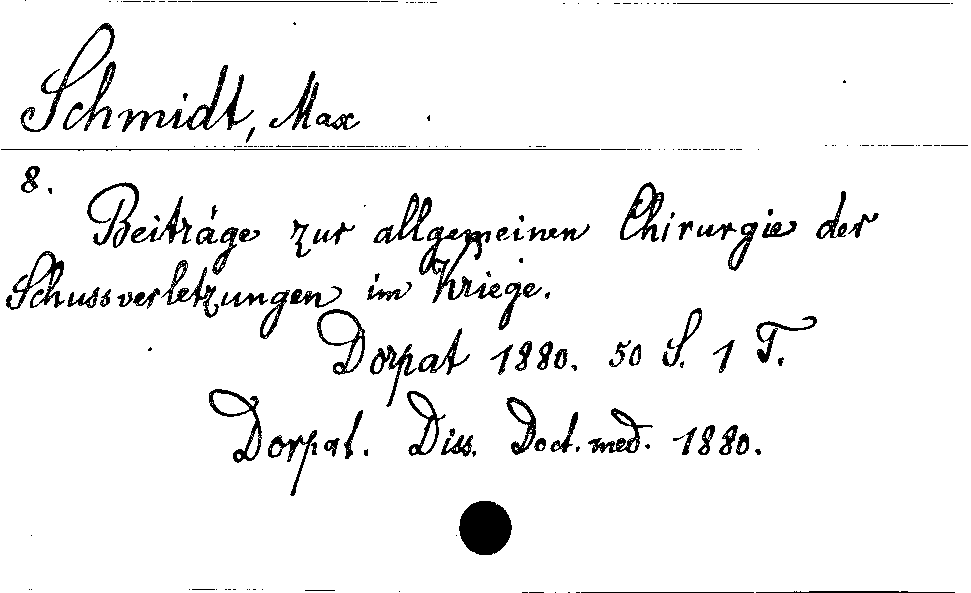 Schmidt, Max
8.
Beiträge zur allgemeinen Chirurgie der
Schussverletzungen im Kriege.
Dorpat 1880. 50 S. 1 T.
Dorpat. Diss. Doct. med. 1880.